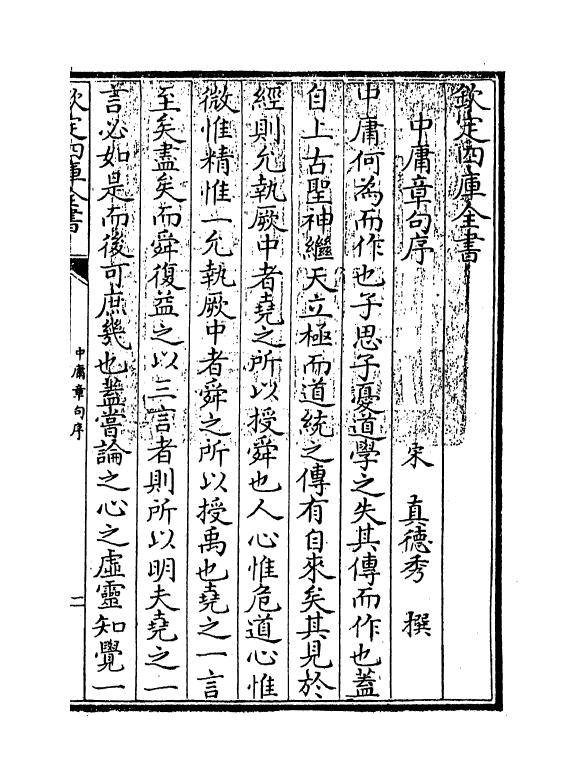 欽定四庫全書
中庸章句序
宋 真德秀 撰
中庸何為而作也子思子憂道學之失其傳而作也蓋
自上古聖神繼天立極而道統之傳有自來矣其見於
經則允執厥中者堯之所以授舜也人心惟危道心惟
微惟精惟一允執厥中者舜之所以授禹也堯之一言
至矣盡矣而舜復益之以三言者則所以明夫堯之一
言必如是而後可庶幾也蓋嘗論之心之虛靈知覺一
欽定四庫全書
中庸章句序
二